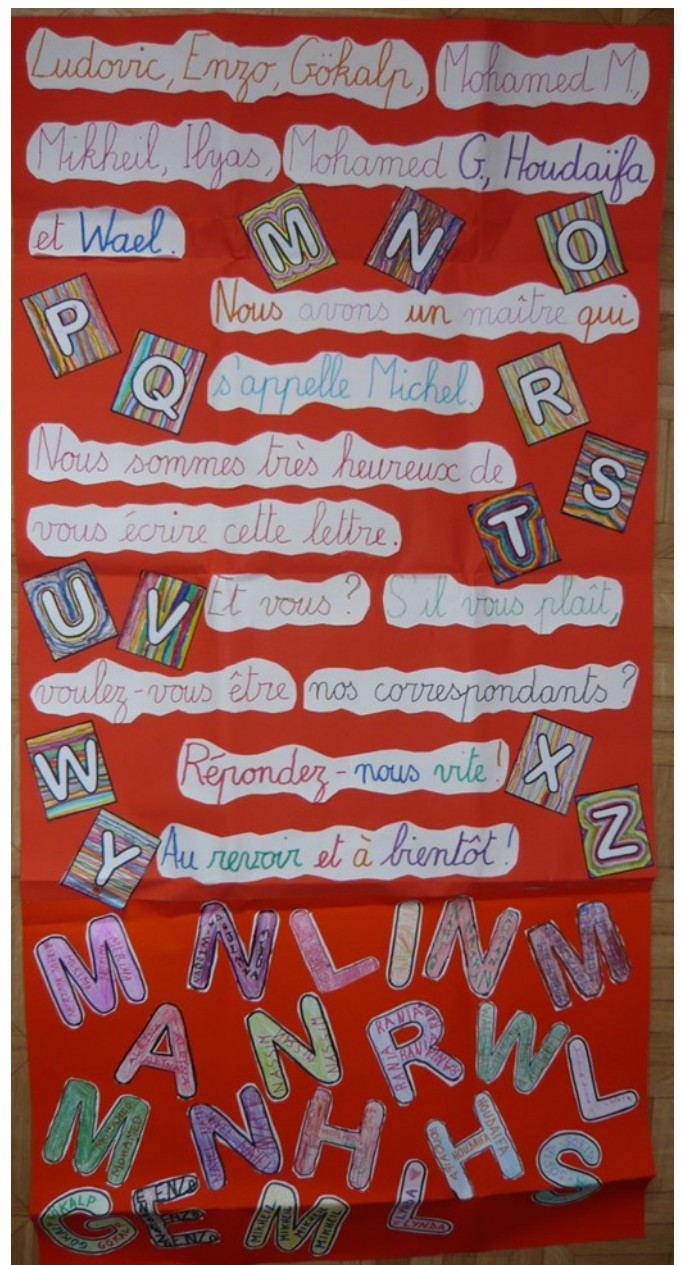 Ludovic, Enzo, Gökalp, Mohamed M.,
Mikheil, Ilyas, Mohamed G., Houdaïfa
et Wael. M N O
P Nous avons un maître qui
Q s'appelle Michel. R
Nous sommes très heureux de S
vous écrire cette lettre. T
U V Et vous ? S'il vous plaît,
voulez-vous être nos correspondants ?
W Répondez-nous vite ! X
Y Au revoir et à bientôt ! Z
M N L I N M
A N NASSIM R RANIA W L
M MOHAMED N H H HOUDAIFA S
G GOKALP E ENZO M MIKHEIL L LYNDA